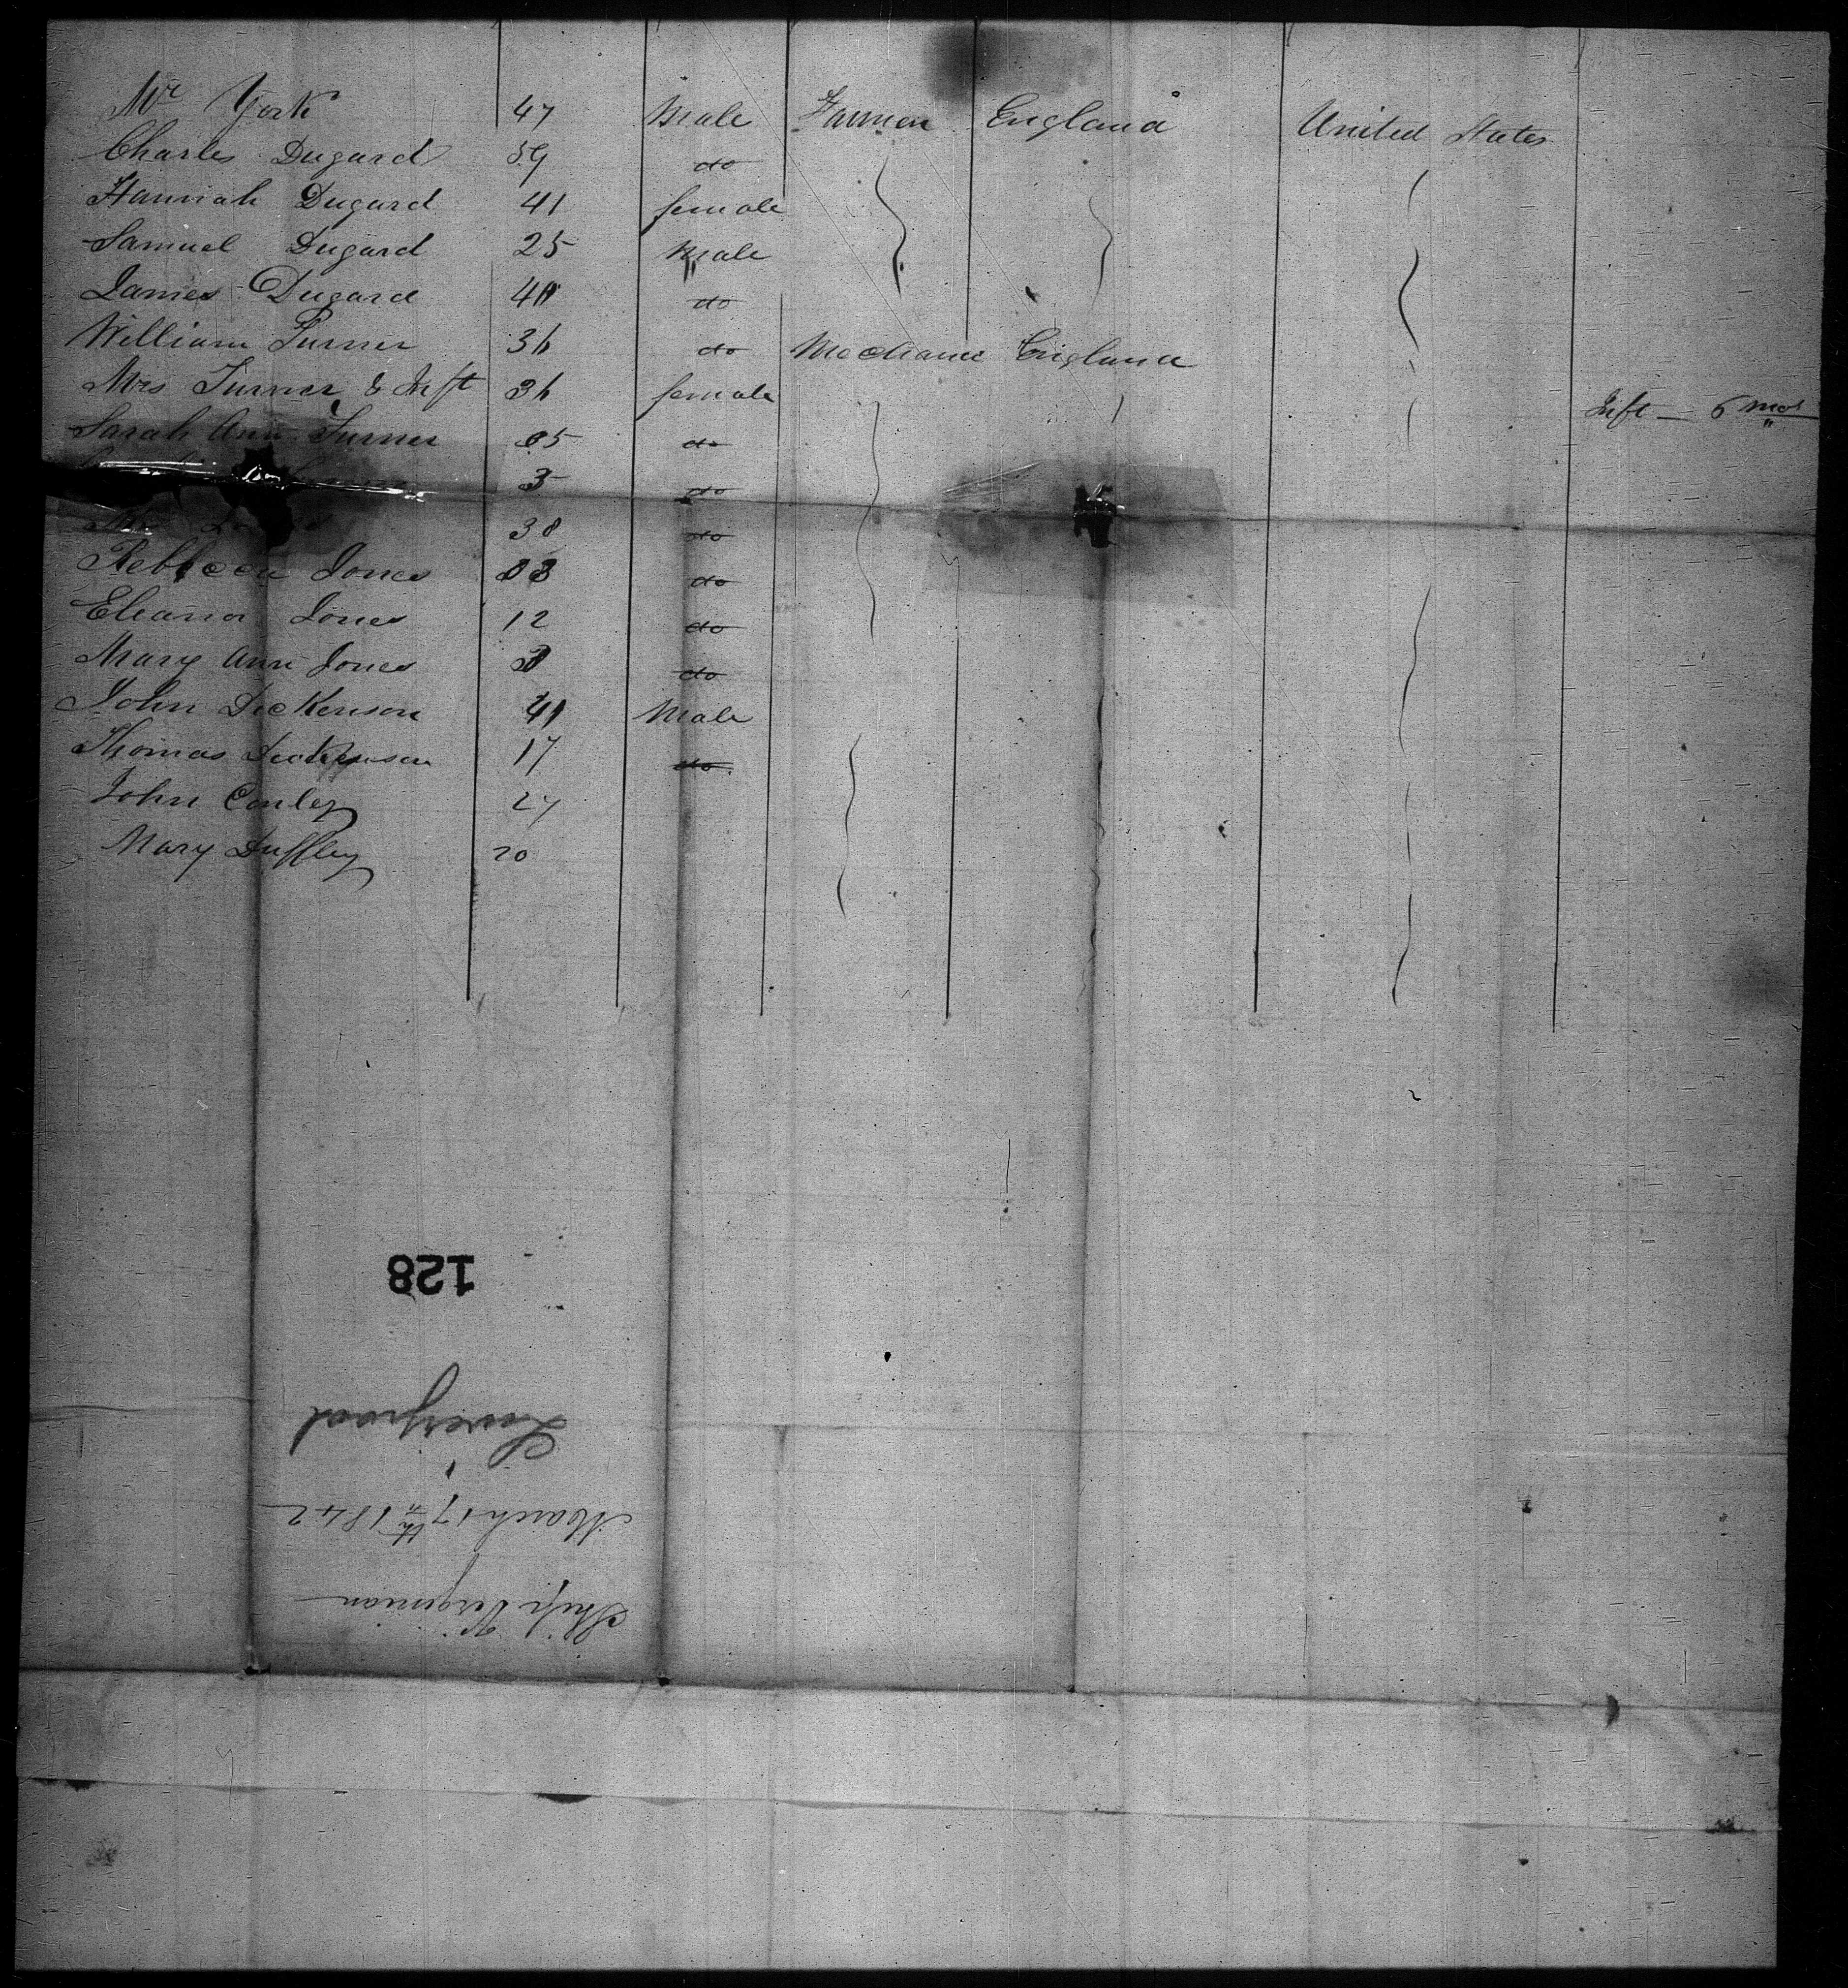 Mr York 47 Male Farmer England United States
Charles Dugard 39 do
Hannah Dugard 41 female
Samuel Dugard 25 Male
James Dugard 40 do
William Turner 36 do Mechanic England
Mrs Turner & Inft 36 female Inft — 6 mos
Sarah Ann Turner 05 do
3 do
38 do
Rebbecca Jones 33 do
Eleanor Jones 12 do
Mary Ann Jones do
John Dickenson 41 Male
Thomas Dickenson 17 do
John Conley 27
Mary Duffley 20
128
Liverpool
March 17th 1842
Ship Virginian